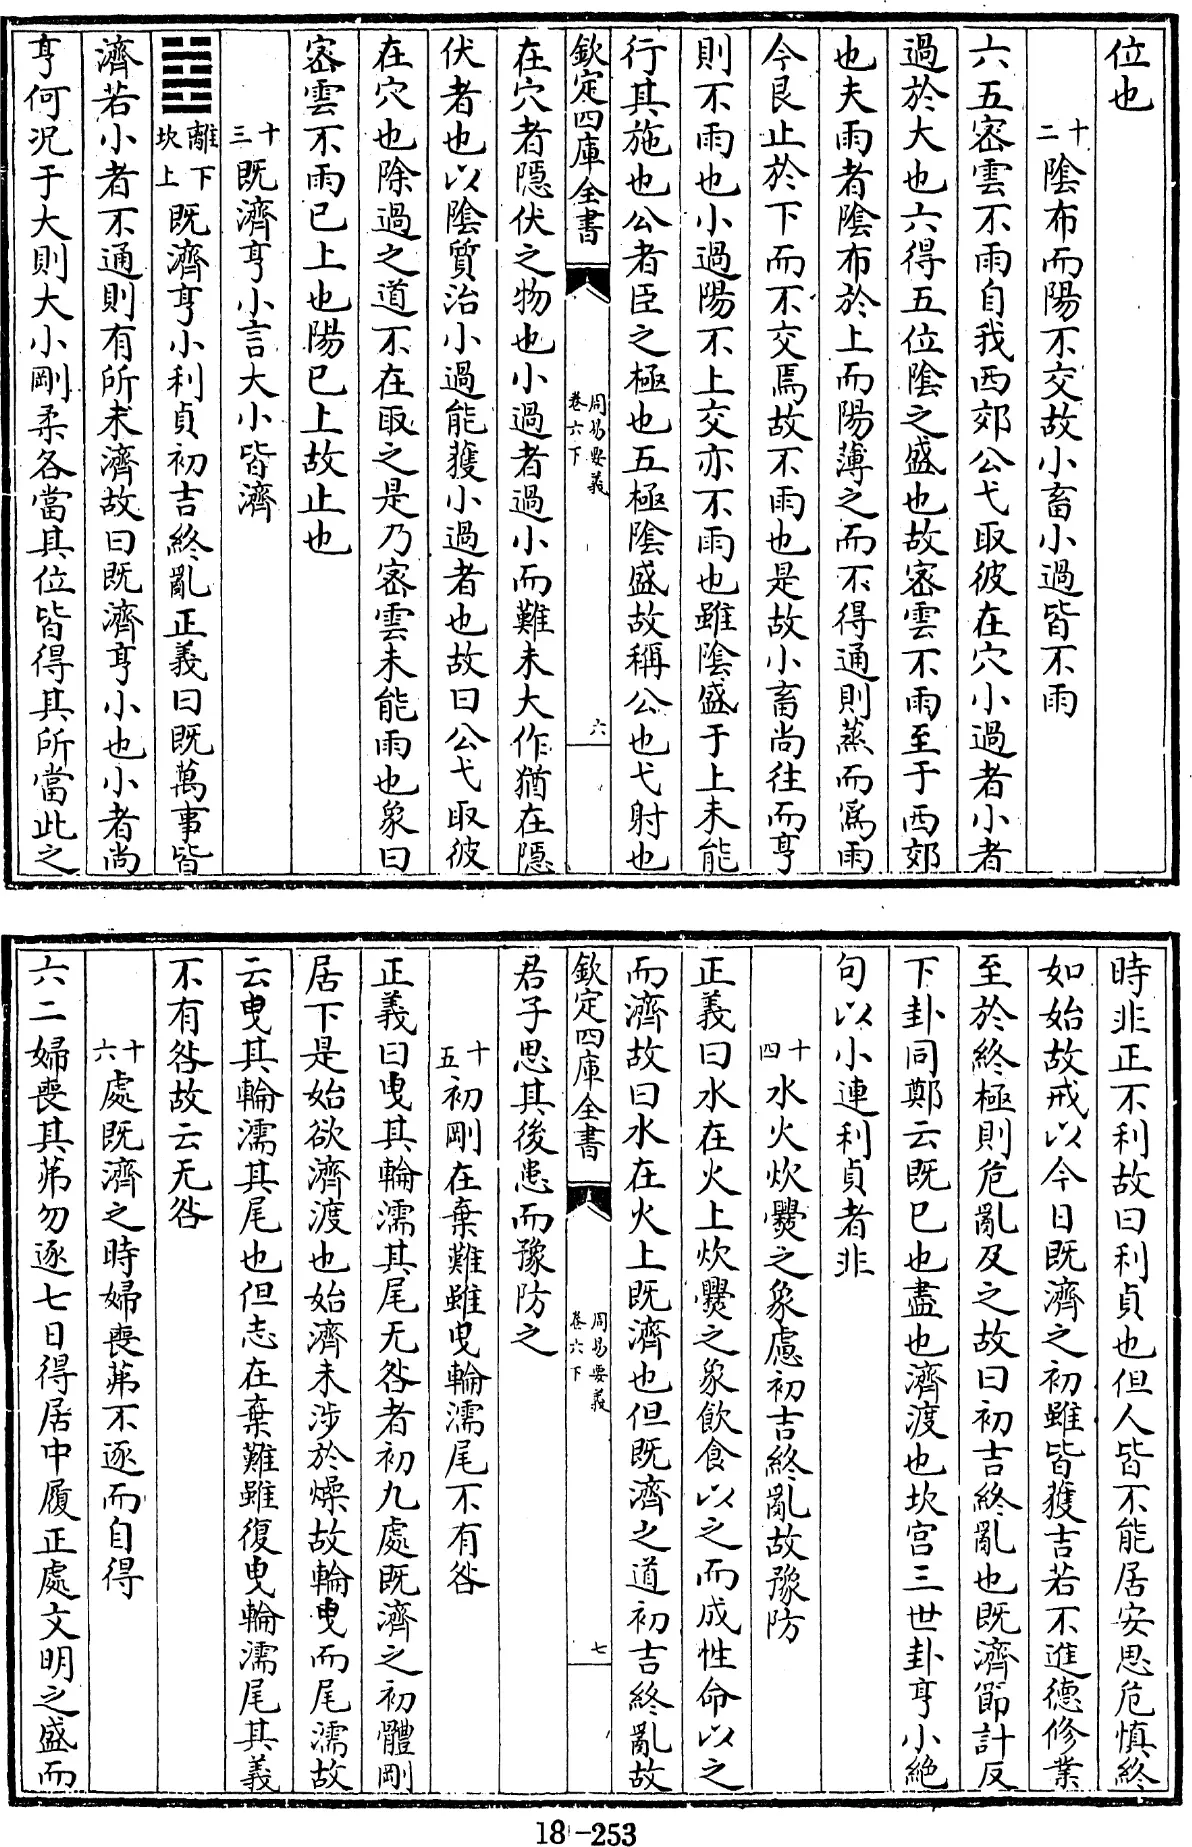 位也
十二陰布而陽不交故小畜小過皆不雨
六五密雲不雨自我西郊公弋取彼在穴小過者小者
過於大也六得五位陰之盛也故密雲不雨至于西郊
也夫雨者陰布於上而陽薄之而不得通則蒸而為雨
今艮止於下而不交焉故不雨也是故小畜尚往而亨
則不雨也小過陽不上交亦不雨也雖陰盛于上未能
行其施也公者臣之極也五極陰盛故稱公也弋射也
欽定四庫全書
周易要義
卷六下
六
在穴者隱伏之物也小過者過小而難未大作猶在隱
伏者也以陰質治小過能獲小過者也故曰公弋取彼
在穴也除過之道不在取之是乃密雲未能雨也象曰
密雲不雨已上也陽已上故止也
十三既濟亨小言大小皆濟
離下坎上既濟亨小利貞初吉終亂正義曰既萬事皆
濟若小者不通則有所未濟故曰既濟亨小也小者尚
亨何況于大則大小剛柔各當其位皆得其所當此之
時非正不利故曰利貞也但人皆不能居安思危慎終
如始故戒以今日既濟之初雖皆獲吉若不進德修業
至於終極則危亂及之故曰初吉終亂也既濟節計反
下卦同鄭云既已也盡也濟渡也坎宮三世卦亨小絶
句以小連利貞者非
十四水火炊爨之象慮初吉終亂故豫防
正義曰水在火上炊爨之象飲食以之而成性命以之
而濟故曰水在火上既濟也但既濟之道初吉終亂故
欽定四庫全書
周易要義
卷六下
七
君子思其後患而豫防之
十五初剛在棄難雖曳輪濡尾不有咎
正義曰曳其輪濡其尾无咎者初九處既濟之初體剛
居下是始欲濟渡也始濟未涉於燥故輪曳而尾濡故
云曳其輪濡其尾也但志在棄難雖復曳輪濡尾其義
不有咎故云无咎
十六處既濟之時婦喪茀不逐而自得
六二婦喪其茀勿逐七日得居中履正處文明之盛而
18-253